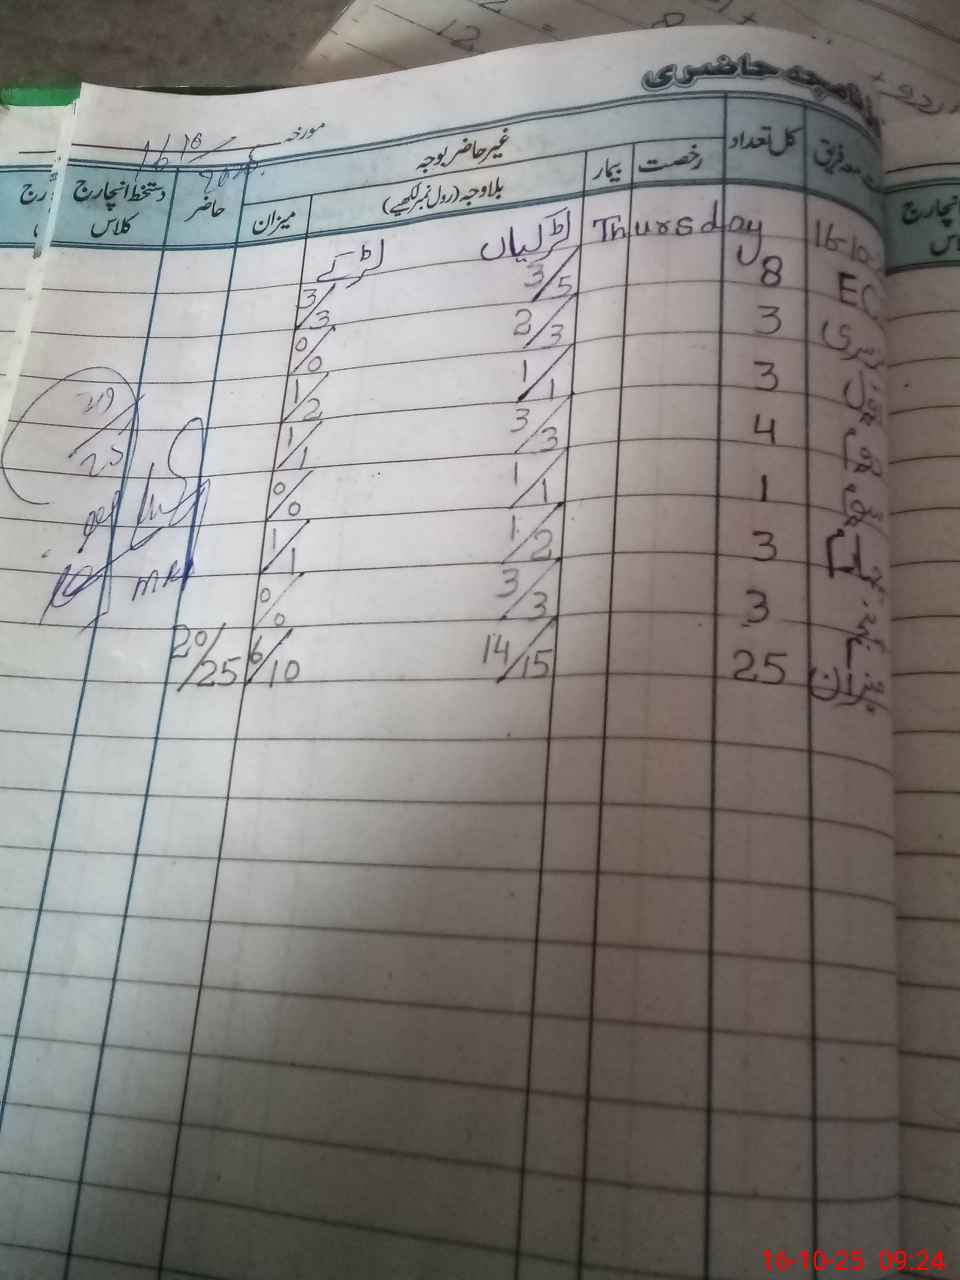 حاضری
مورخہ 16/10/2025
کل تعداد
غیر حاضر بوجہ
رخصت
بیمار
بلاوجہ (رول نمبر لکھیے)
میزان
حاضر
دستخط انچارج کلاس
16-10- Thursday لڑکیاں لڑکے
EC 8 3/5 3/3
3 2/3 0/0
اول 3 1/1 1/2
دوم 4 3/3 1/1
سوم 1 1/1 0/0
چہارم 3 1/2 1/1
پنجم 3 3/3 0/0
میزان 25 14/15 6/10 20/25
19
25
16-10-25 09:24